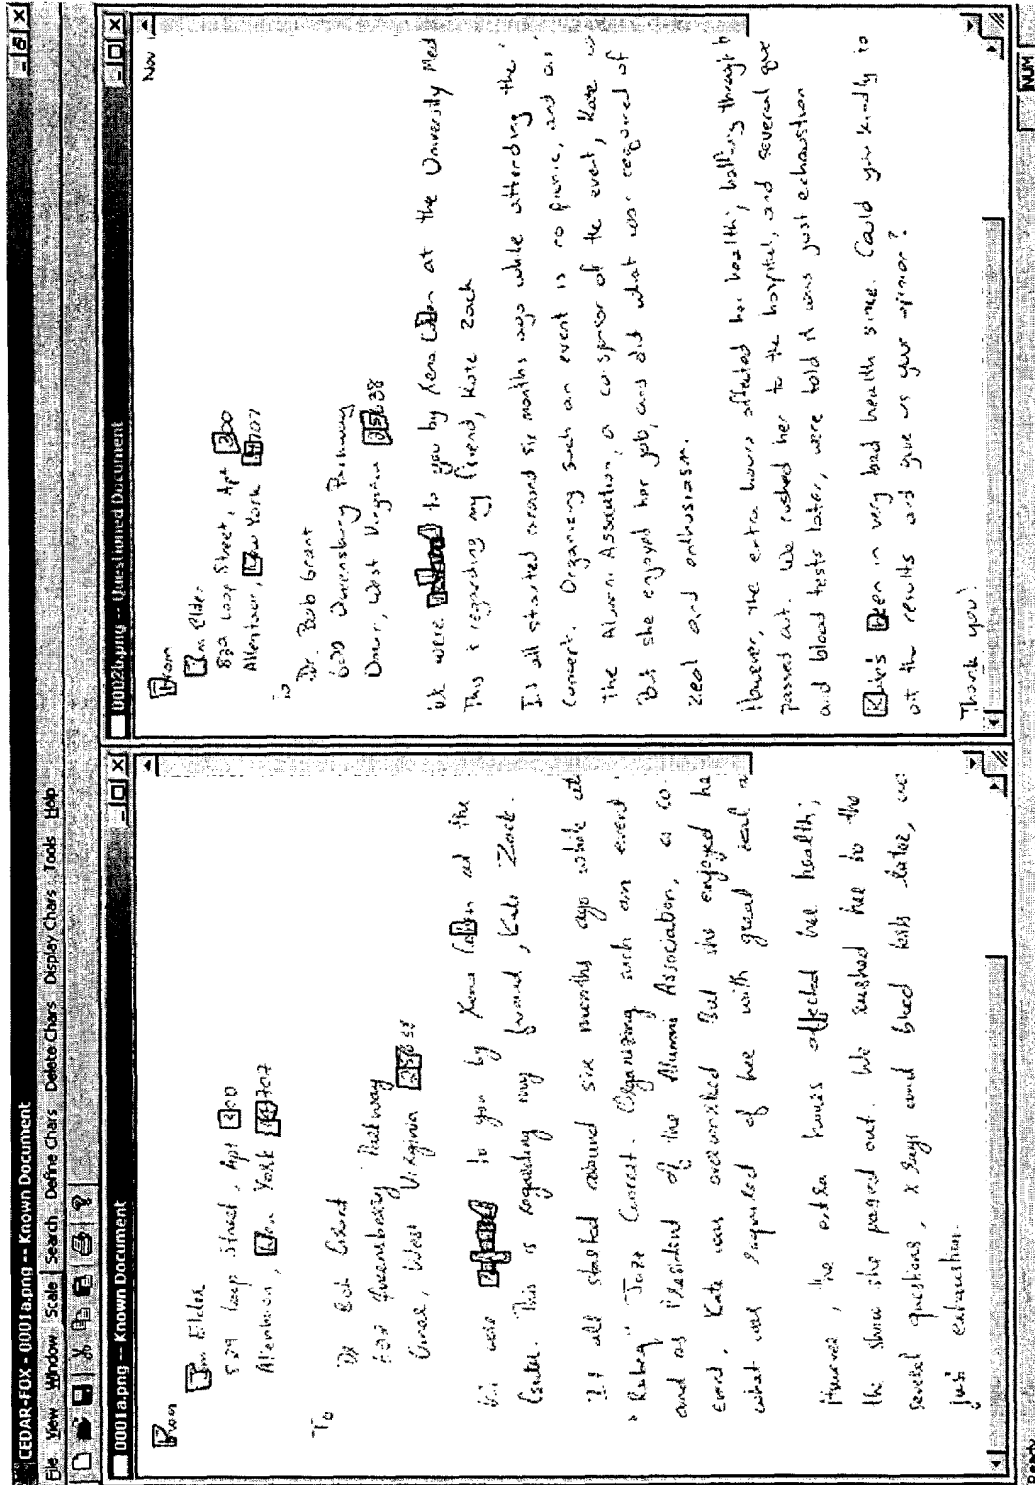 CEDAR-FOX - 0001a.png -- Known Document
File View Window Scale Search Define Chars Delete Chars Display Chars Tools Help
0001a.png -- Known Document
From
Jim Elder
829 Loop Street, Apt 300
Allentown, New York 14707
To
Dr Bob Grant
602 Queensberry Parkway
Omar, West Virginia 25638
We were referred to you by Xena Cohen at the
Center. This is regarding my friend, Kate Zack.
It all started around six months ago while att
"Rubeq" Jazz Concert. Organizing such an event
and as President of the Alumni Association, a co
event, Kate was overworked. But she enjoyed he
what was required of her with great zeal a
However, the extra hours affected her health;
the show she passed out. We rushed her to the
several questions, x rays and blood tests later, we
just exhaustion.
0002b.png -- Questioned Document
Nov
From
Jim Elder
829 Loop Street, Apt 300
Allentown, New York 14707
To
Dr. Bob Grant
602 Queensberry Parkway
Omar, West Virginia 25638
We were referred to you by Xena Cohen at the University Med
This is regarding my friend, Kate Zack
It all started around six months ago while attending the
Concert. Organizing such an event is no picnic, and as
the Alumni Association, a co-sponsor of the event, Kate w
But she enjoyed her job, and did what was required of
zeal and enthusiasm.
However, the extra hours affected her health; halfway through
passed out. We rushed her to the hospital, and several que
and blood tests later, were told it was just exhaustion
Kate's been in very bad health since. Could you kindly
at the results and give us your opinion?
Thank you!
Ready
NUM